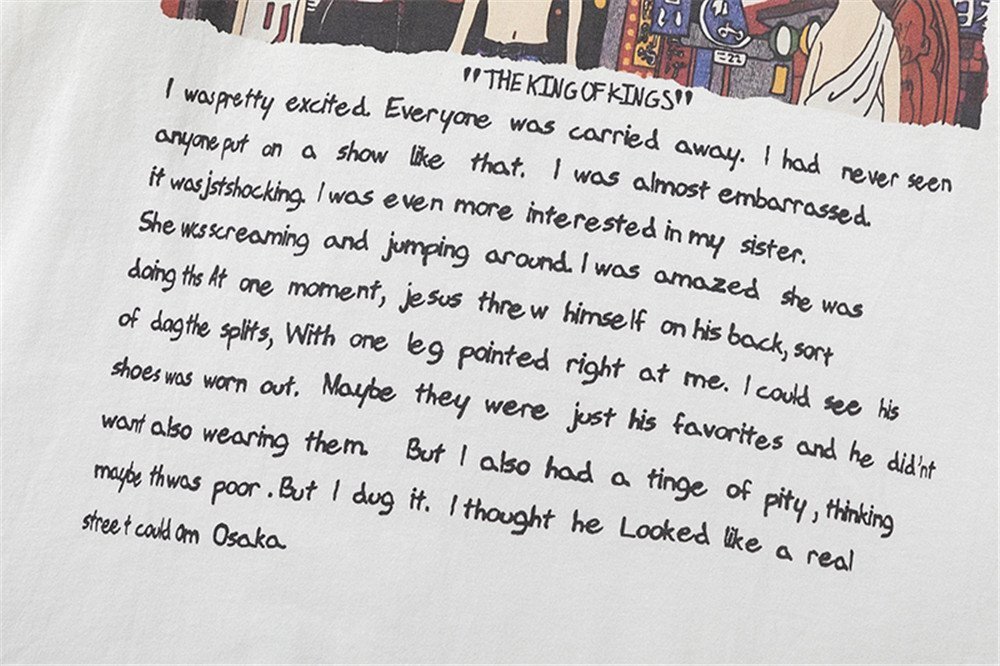 "THE KING OF KINGS"
I was pretty excited. Everyone was carried away. I had never seen
anyone put on a show like that. I was almost embarrassed.
it was jst shocking. I was even more interested in my sister.
She wcs screaming and jumping around. I was amazed she was
doing ths At one moment, jesus threw himself on his back, sort
of dag the splits, With one leg pointed right at me. I could see his
shoes was worn out. Maybe they were just his favorites and he did'nt
want also wearing them. But I also had a tinge of pity, thinking
maybe th was poor. But I dug it. I thought he Looked like a real
street could Osaka.